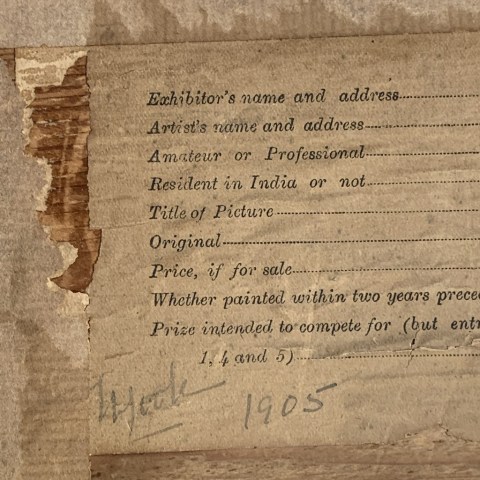 Exhibitor's name and address
Artist's name and address
Amateur or Professional
Resident in India or not
Title of Picture
Original
Price, if for sale
Whether painted within two years prece
Prize intended to compete for (but entr
1, 4 and 5)
1905